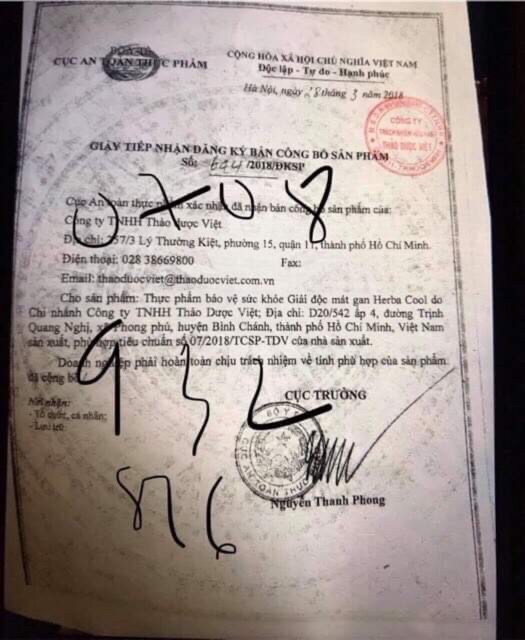 BỘ Y TẾ
CỤC AN TOÀN THỰC PHẨM
CỘNG HÒA XÃ HỘI CHỦ NGHĨA VIỆT NAM
Độc lập - Tự do - Hạnh phúc
Hà Nội, ngày 28 tháng 3 năm 2018
CÔNG TY
THẢO DƯỢC VIỆT
GIẤY TIẾP NHẬN ĐĂNG KÝ BẢN CÔNG BỐ SẢN PHẨM
Số: /2018/ĐKSP
0708
Cục An toàn thực phẩm xác nhận đã nhận bản công bố sản phẩm của:
Công ty TNHH Thảo Dược Việt
Địa chỉ: 257/3 Lý Thường Kiệt, phường 15, quận 11, thành phố Hồ Chí Minh.
Điện thoại: 028 38669800 Fax:
Email: thaoduocviet@thaoduocviet.com.vn
Cho sản phẩm: Thực phẩm bảo vệ sức khỏe Giải độc mát gan Herba Cool do
Chi nhánh Công ty TNHH Thảo Dược Việt; Địa chỉ: D20/542 ấp 4, đường Trịnh
Quang Nghị, xã Phong phú, huyện Bình Chánh, thành phố Hồ Chí Minh, Việt Nam
sản xuất, phù hợp tiêu chuẩn số 07/2018/TCSP-TDV của nhà sản xuất.
Doanh nghiệp phải hoàn toàn chịu trách nhiệm về tính phù hợp của sản phẩm
đã công bố./.
932
Nơi nhận:
- Tổ chức, cá nhân;
- Lưu trữ.
CỤC TRƯỞNG
BỘ Y TẾ
CỤC AN TOÀN THỰC
876
Nguyễn Thanh Phong